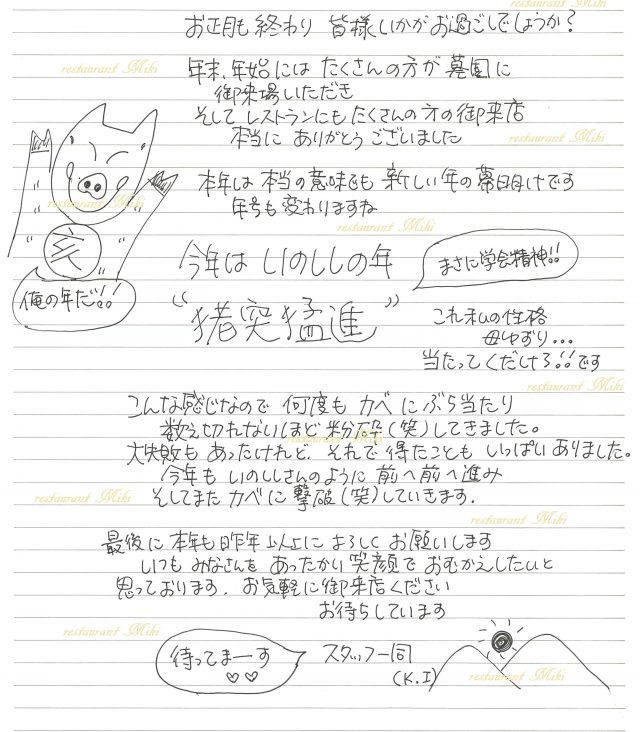 お正月も終わり 皆様いかがお過ごしでしょうか?
年末、年始には たくさんの方が 墓園に
御来場いただき
そして レストランにもたくさんの方の御来店
本当に ありがとうございました
本年は 本当の意味でも 新しい年の幕開けです
年号も変わりますね
亥
俺の年だ!!
今年は いのししの年
まさに学会精神!!
"猪突猛進"
これ私の性格
母ゆずり...
当たってくだけろ!!です
こんな感じなので 何度も カベに ぶち当たり
数え切れないほど粉砕(笑)してきました。
大失敗もあったけれど、それで得たことも いっぱいありました。
今年も いのししさんのように 前へ前へ進み
そしてまた カベに 撃破(笑)していきます.
最後に 本年も昨年以上に よろしく お願いします
いつも みなさんを あったかい笑顔で おむかえしたいと
思っております. お気軽に御来店ください
お待ちしています
待ってまーす
スタッフ一同
(K.I)
restaurant Miki
restaurant Miki
restaurant Miki
restaurant Miki
restaurant Miki
restaurant Miki
restaurant Miki
restaurant Miki
restaurant Miki
restaurant Miki
restaurant Miki
restaurant Miki